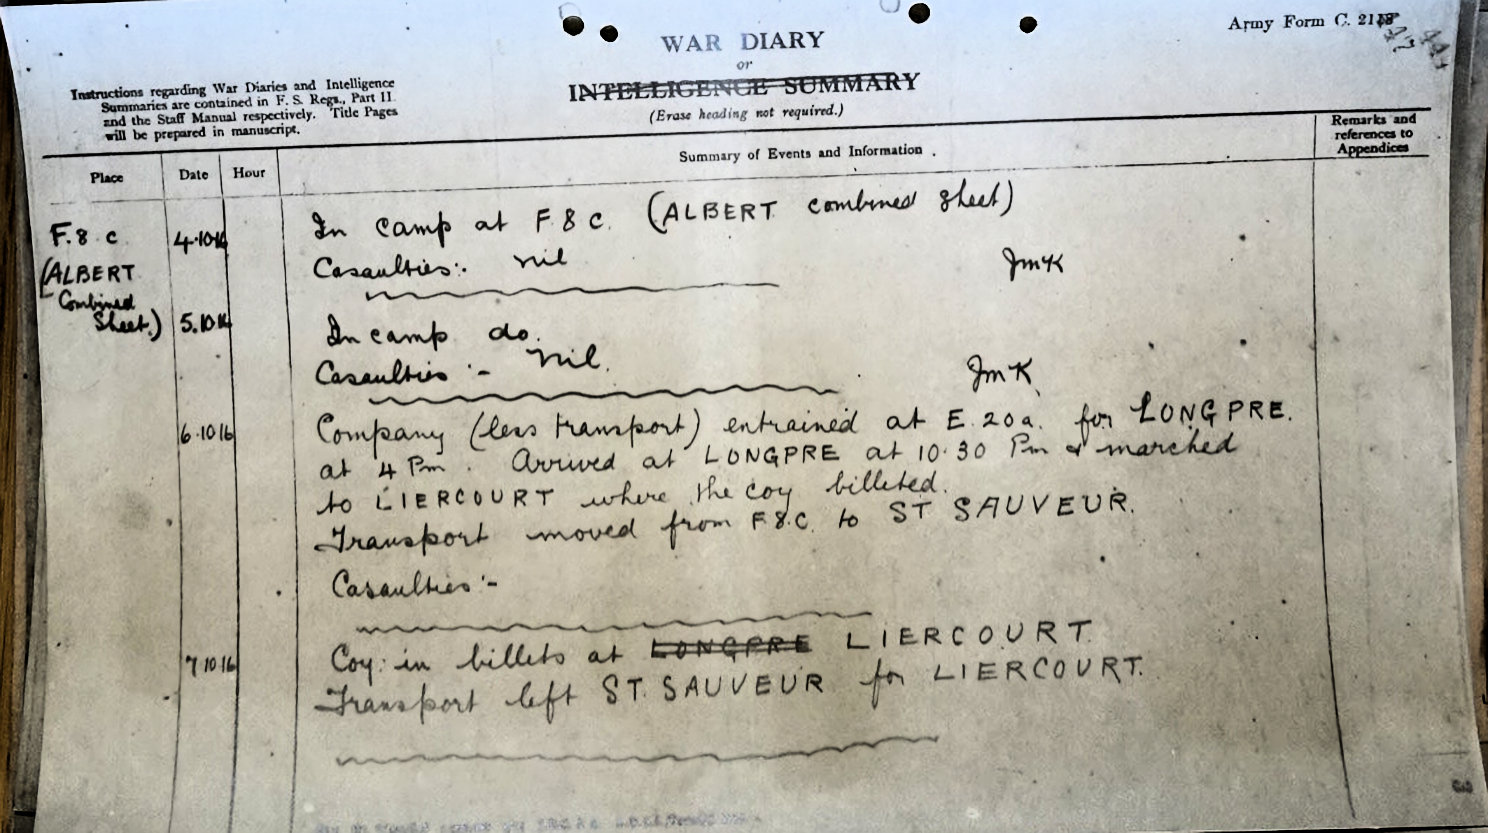 Army Form C. 2118
WAR DIARY
or
INTELLIGENCE SUMMARY
(Erase heading not required.)
Instructions regarding War Diaries and Intelligence
Summaries are contained in F. S. Regs., Part II.
and the Staff Manual respectively. Title Pages
will be prepared in manuscript.
Place
Date
Hour
Summary of Events and Information
Remarks and
references to
Appendices
F. 8 c
(ALBERT
Combined
Sheet.)
4.10.16
In camp at F 8 c. (ALBERT combined sheet)
Casaulties:- nil
JmK
5.10.16
In camp do.
Casaulties :- nil.
JmK
6.10.16
Company (less transport) entrained at E.20a. for LONGPRE.
at 4 Pm. Arrived at LONGPRE at 10.30 Pm & marched
to LIERCOURT where the coy billeted.
Transport moved from F.8.C. to ST SAUVEUR.
Casaulties :-
7.10.16
Coy: in billets at LONGPRE LIERCOURT.
Transport left ST. SAUVEUR for LIERCOURT.